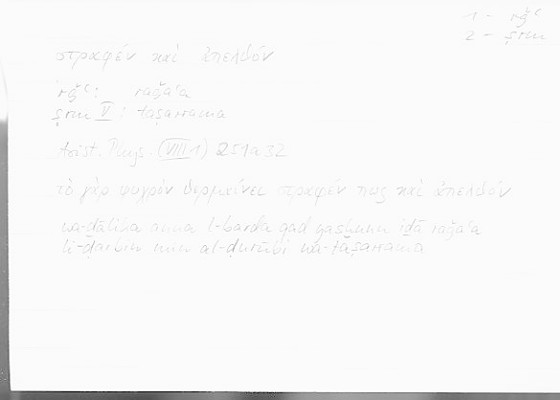 1 – rǧʿ
2 – ṣrm
στραφέν καὶ ἀπελθόν
rǧʿ: raǧaʿa
ṣrm V: taṣarrama
Arist. Phys. (VIII 1) 251a32
τὸ γὰρ ψυχρὸν θερμαίνει στραφέν πως καὶ ἀπελθόν
wa-ḏālika anna l-barda qad yusḫinu iḏā raǧaʿa
li-ḍarbin min al-ḍurūbi wa-taṣarrama